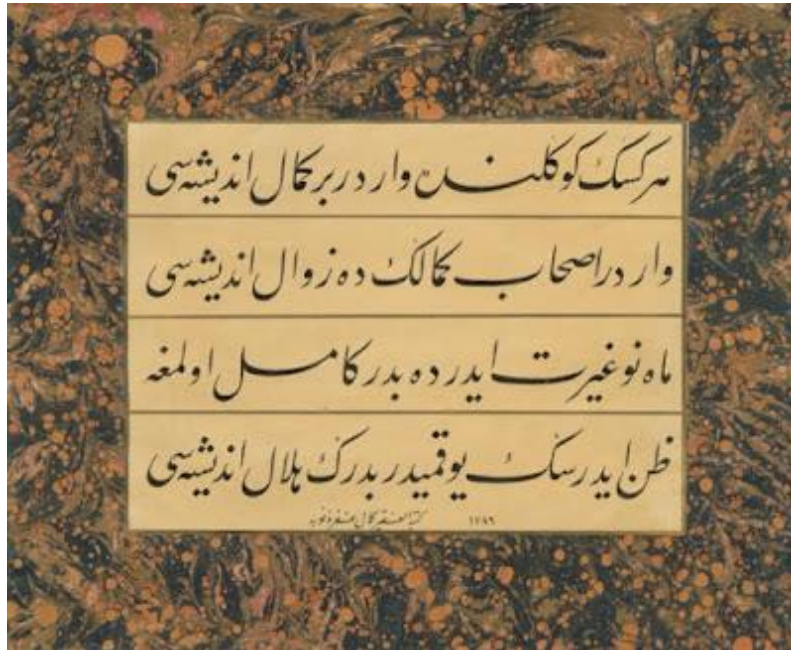 هر كسك كوكلنده واردر بر كمال انديشه سى
واردر اصحاب كمالك ده زوال انديشه سى
ماه نو غيرت ايدر ده بدر كامل اولمغه
ظن ايدرسك يوقميدر بدرك هلال انديشه سى
كتبه الفقير كمال غفر ذنوبه ١٢٨٩